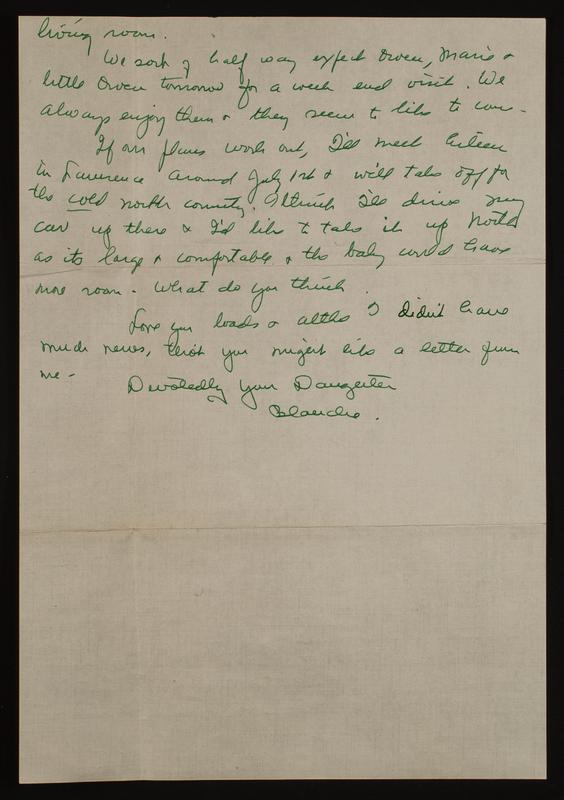 living room.
We sort of half way expect Owen, Marie &
little Owen tomorrow for a week end visit. We
always enjoy them & they seem to like to come -
If our plans work out, I'll meet Eileen
in Lawrence around July 1st & we'll take off for
the cold north country. I think I'll drive my
car up there & I'd like to take it up North
as its large & comfortable & the baby would have
more room. What do you think.
Love you loads & altho I didn't have
much news, thot you might like a letter from
me -
Devotedly Your Daughter
Blanche.